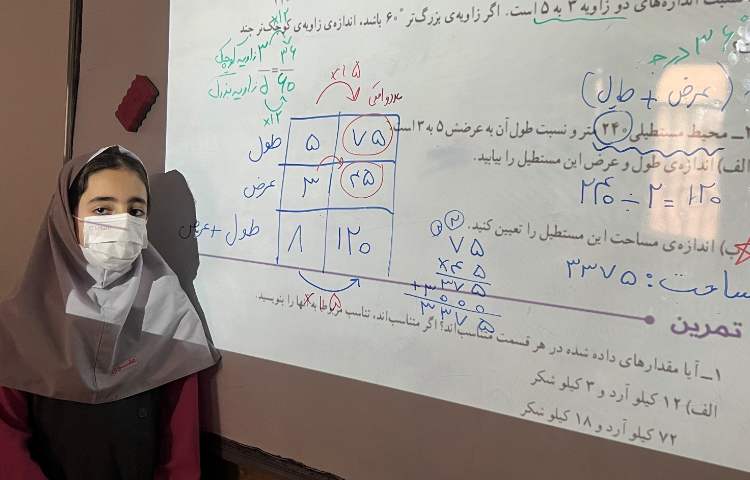 دو زاویه ۳ به ۵ است. اگر زاویه‌ی بزرگ‌تر ۶۰° باشد، اندازه‌ی زاویه‌ی کوچک‌تر چند
×۱۲
زاویه کوچک ۳ ۳۶
=
زاویه بزرگ ۵ ۶۰
×۱۲
۳۶ درجه
(عرض + طول)
۲ــ محیط مستطیلی ۲۴۰ متر و نسبت طول آن به عرضش ۵ به ۳ است.
الف) اندازه‌ی طول و عرض این مستطیل را بیابید.
۲۴۰ ÷ ۲ = ۱۲۰
ب) اندازه‌ی مساحت این مستطیل را تعیین کنید.
مساحت: ۳۳۷۵
×۱۵
طول ۵ ۷۵
عرض ۳ ۴۵
طول + عرض ۸ ۱۲۰
×۱۵
۷۵
×۴۵
۳۷۵
+۳۰۰۰
۳۳۷۵
تمرین
۱ــ آیا مقدارهای داده شده در هر قسمت متناسب‌اند؟ اگر متناسب‌اند، تناسب مربوط به آنها را بنویسید.
الف) ۱۲ کیلو آرد و ۳ کیلو شکر
۷۲ کیلو آرد و ۱۸ کیلو شکر